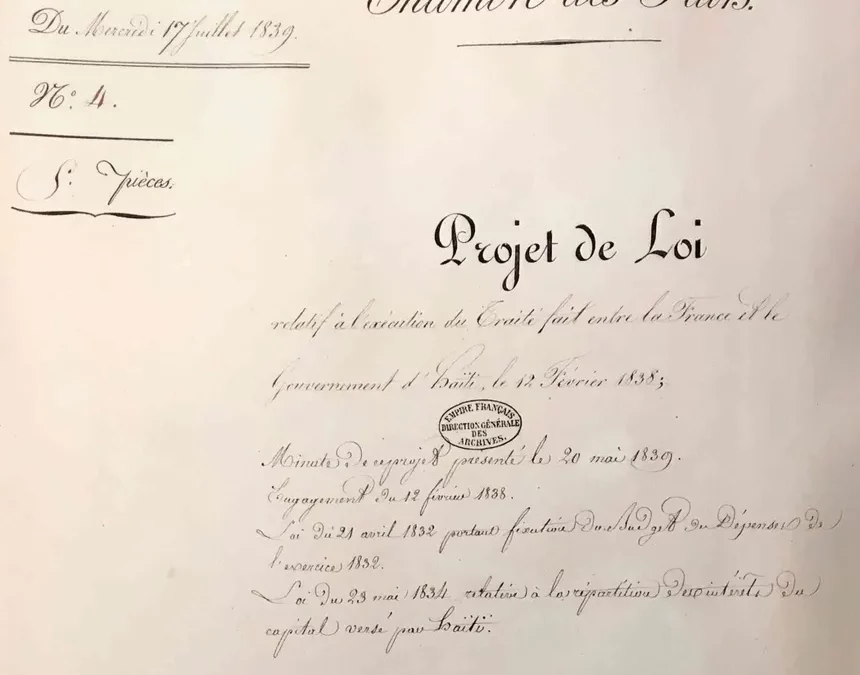 Chambre des Pairs.
Du Mercredi 17 Juillet 1839.
N.° 4.
5. pièces.
Projet de Loi
relatif à l'exécution du Traité fait entre la France et le
Gouvernement d'haïti, le 12 Février 1838;
EMPIRE FRANÇAIS
DIRECTION GÉNÉRALE
DES
ARCHIVES.
Minute de ce projet présenté le 20 mai 1839.
Engagement du 12 février 1838.
Loi du 21 avril 1832 portant fixation du Budget des Dépenses de
l'exercice 1832.
Loi du 23 mai 1834 relative à la répartition des intérêts du
capital versé par haïti.